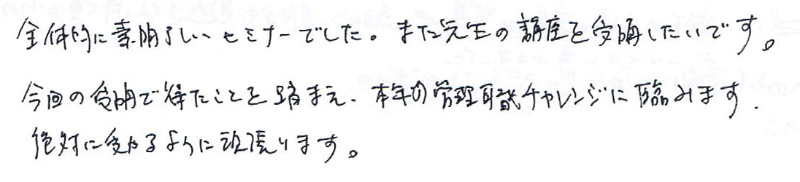 全体的に素晴らしいセミナーでした。また先生の講座を受講したいです。
今回の受講で得たことを踏まえ、本年の管理職チャレンジに臨みます。
絶対に受かるように頑張ります。